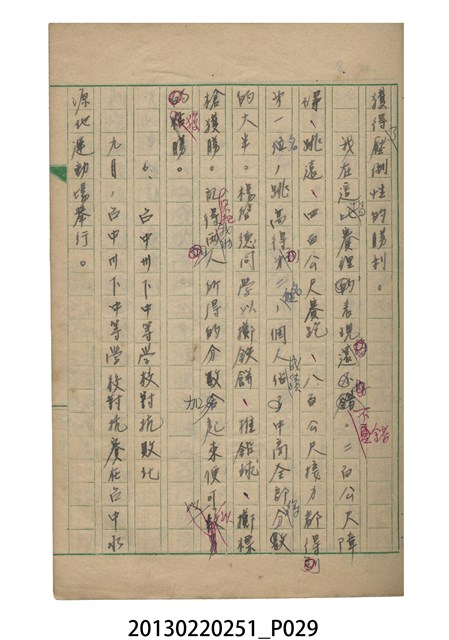 獲得了壓倒性的勝利。
我在這場賽裡的表現還不錯。二百公尺障
碍、跳遠、四百公尺賽跑、八百公尺接力都得
第一名，跳高得第二名，個人成績中商全部分數
的大半。楊啓德同學以擲鉄餅、推鉛球、擲標
槍獲勝。記得我們兩人所得的分數加起來便可以
獲勝。
6、台中州下中等學校對抗敗北
九月，台中州下中等學校對抗賽在台中水
源地運動場舉行。
20130220251_P029